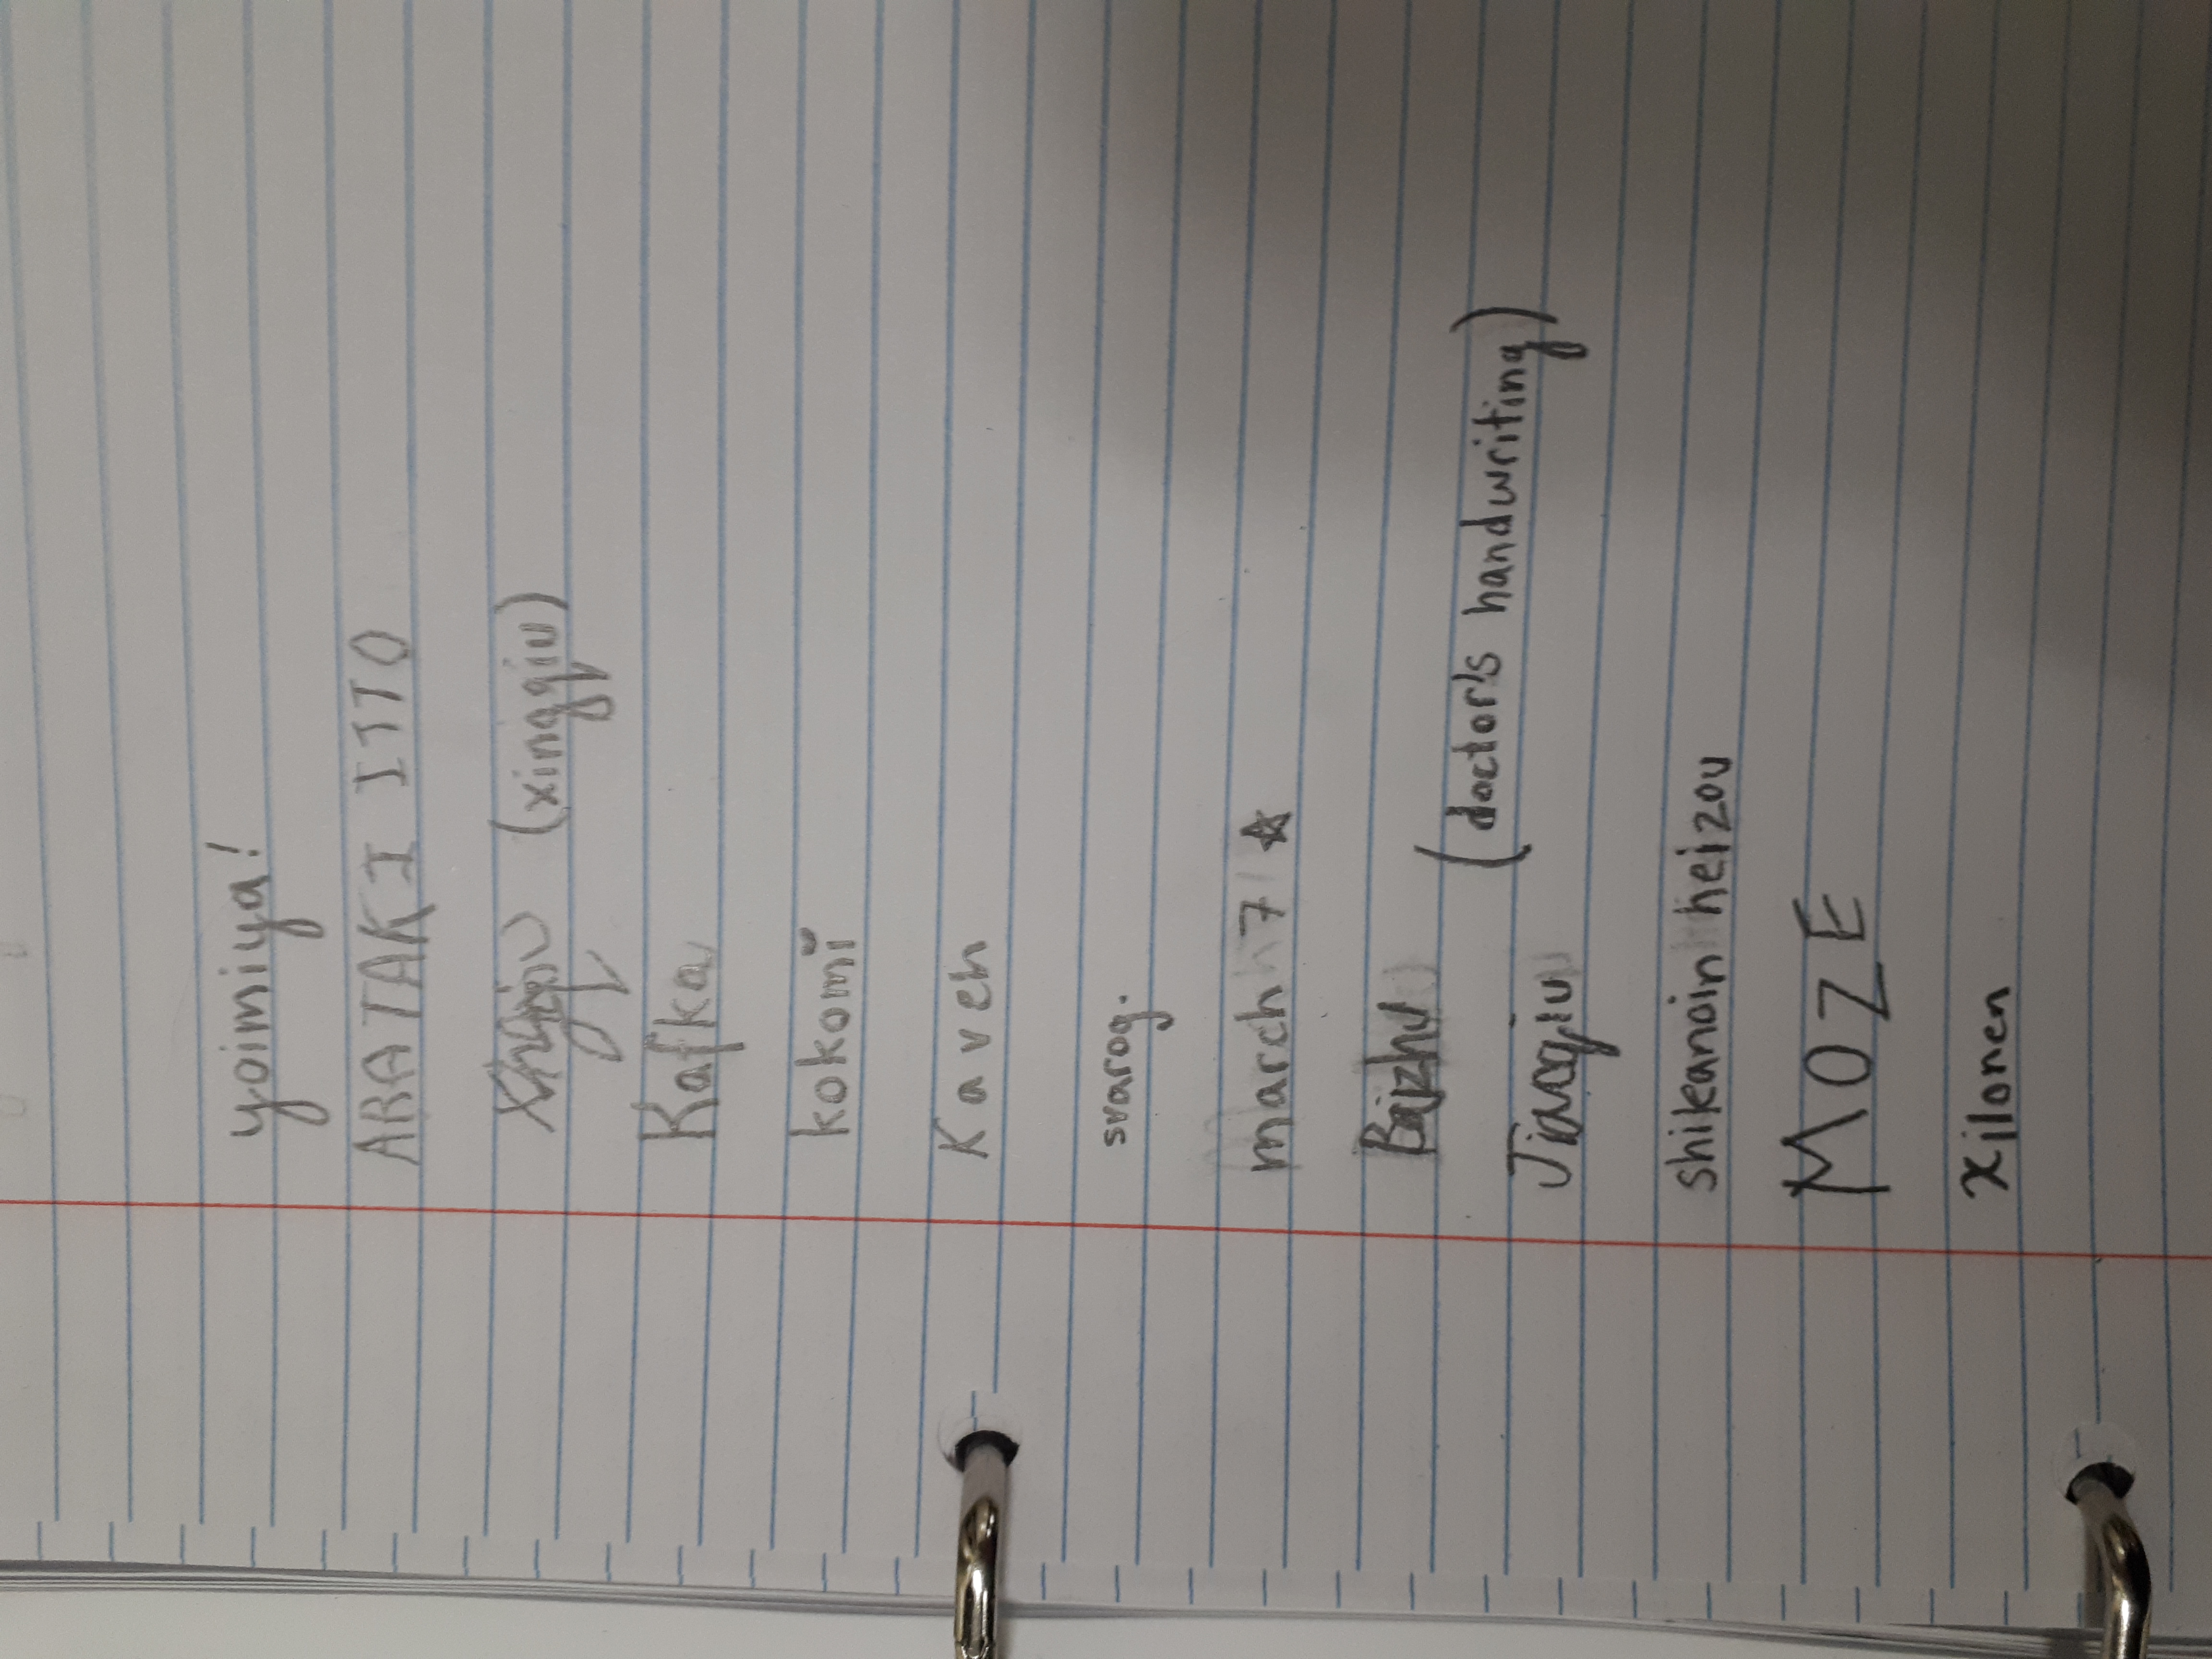 yoimiya!
ARATAKI ITTO
Xingqiu (xingqiu)
Kafka
kokomi
Kaveh
svarog.
march 7 ☆
Baizhu
(doctor's handwriting)
Jiaoqiu
shikanoin heizou
MOZE
xilonen